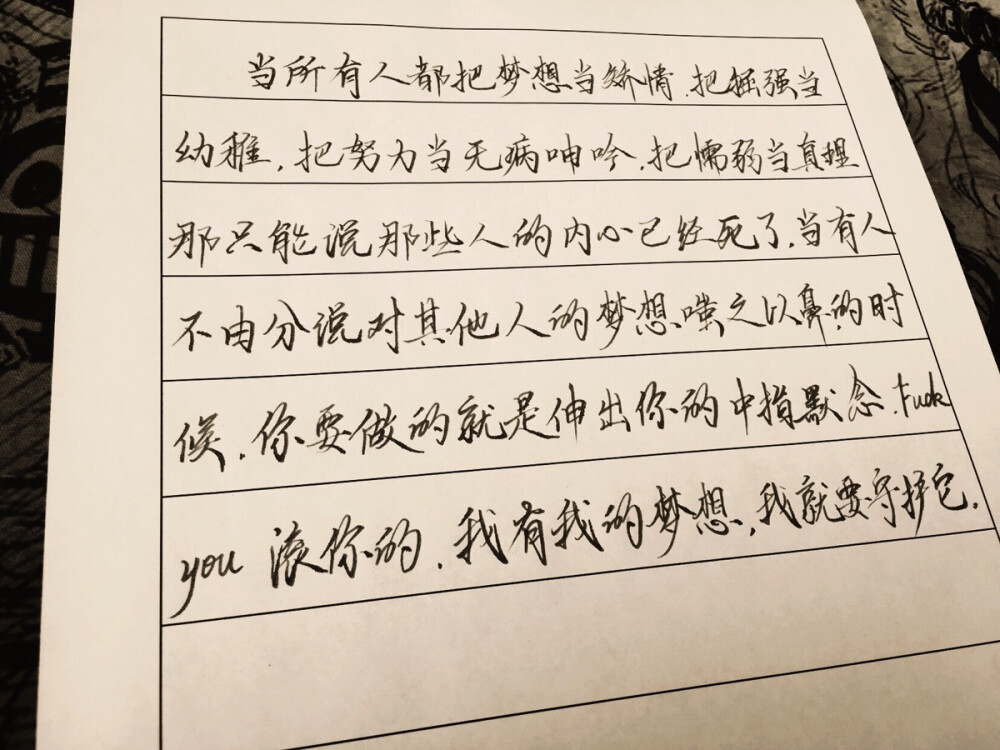 当所有人都把梦想当矫情.把倔强当
幼稚.把努力当无病呻吟.把懦弱当真理
那只能说那些人的内心已经死了.当有人
不由分说对其他人的梦想嗤之以鼻的时
候.你要做的就是伸出你的中指默念.Fuck
you 滚你的.我有我的梦想,我就要守护它.